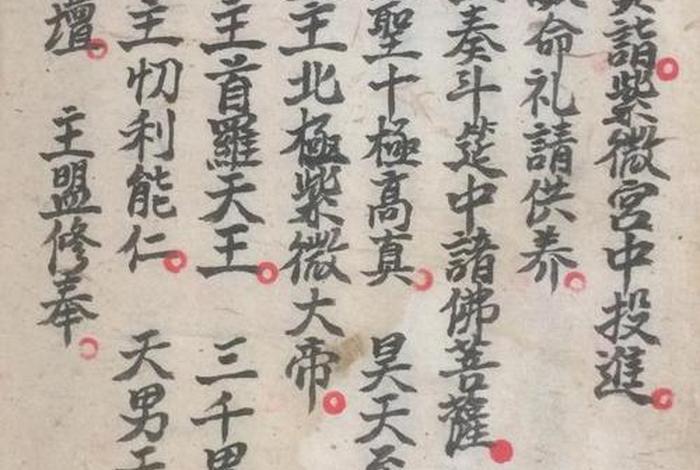 詣紫微宮中投進
命礼請供养
奏斗筵中諸佛菩薩
聖十極高真 昊天至
主北極紫微大帝
主首羅天王 三千界
主忉利能仁 天男天
壇 主盟修奉